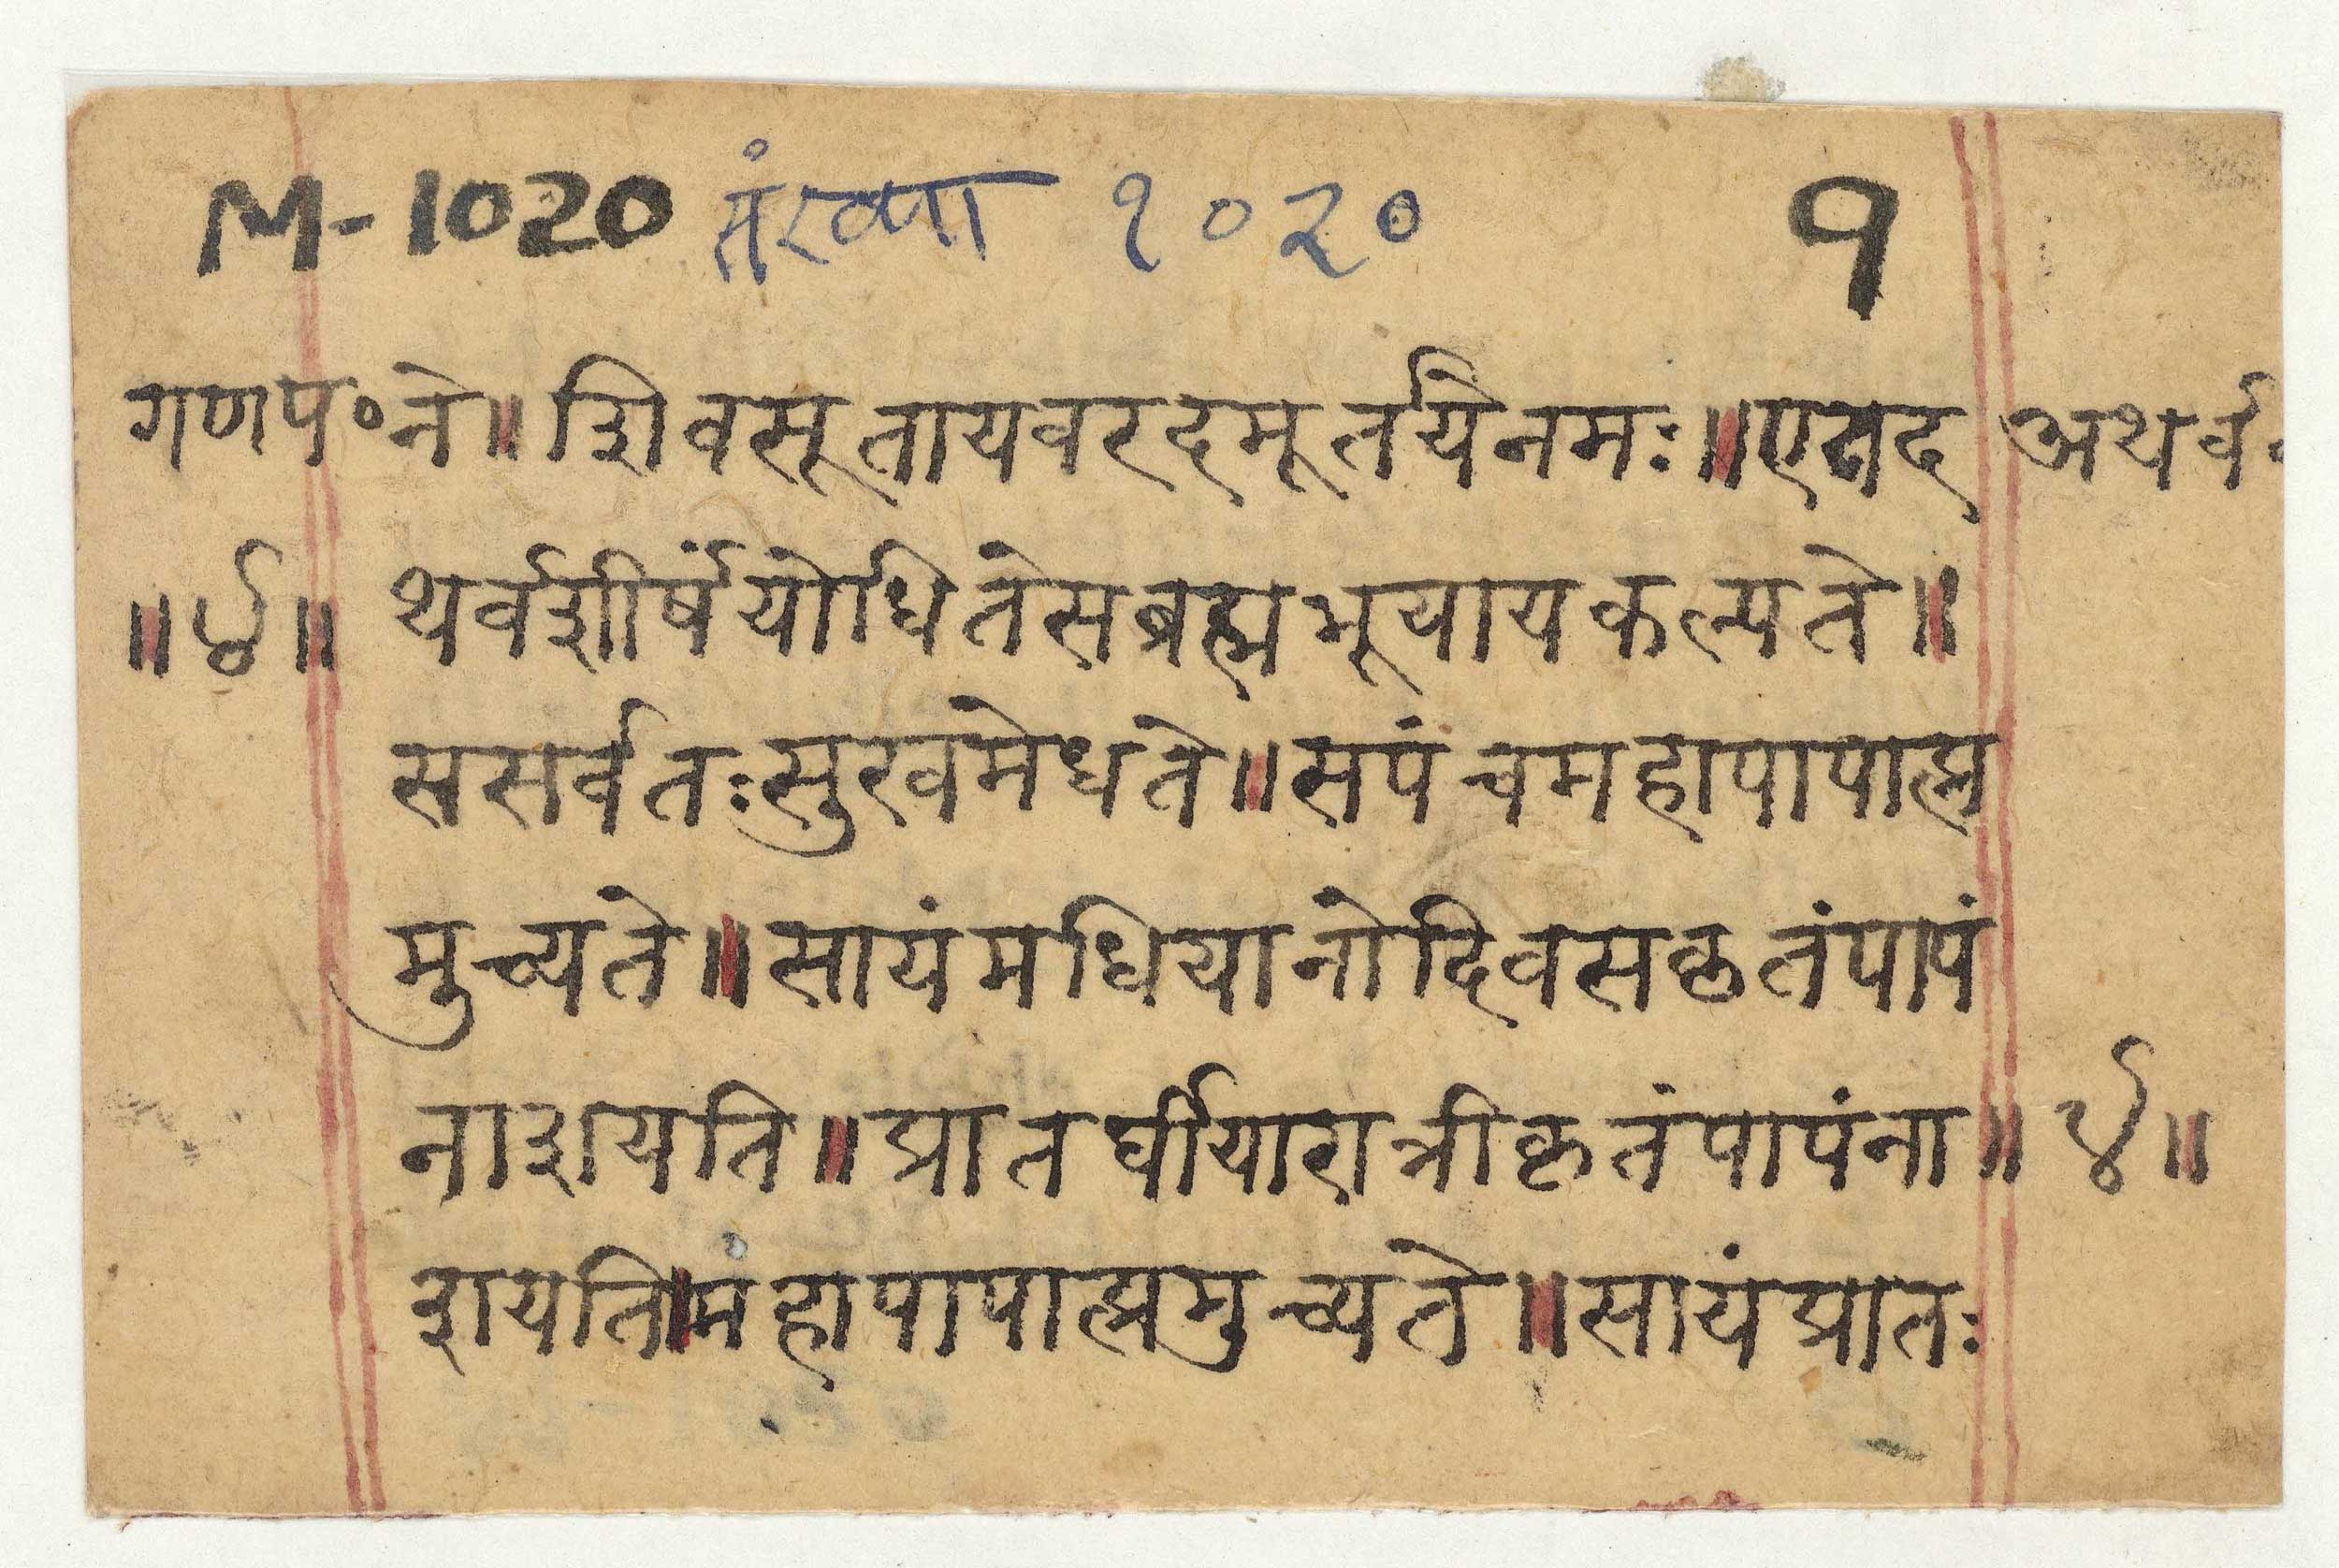 M-1020 संख्या १०२० १
गणप॰ ने॥ शिवसूतायवरदमूर्तयेनमः॥एतद अथर्व
॥४॥ थर्वशीर्षंयोधितेसब्रह्मभूयायकल्पते॥
ससर्वतःसुखमेधते॥सपंचमहापापात्प्र
मुच्यते॥सायंमधियानोदिवसकृतंपापं
नाशयति॥प्रातर्धीयारात्रीकृतंपापंना॥४॥
शयति॥महापापात्प्रमुच्यते॥सायंप्रातः